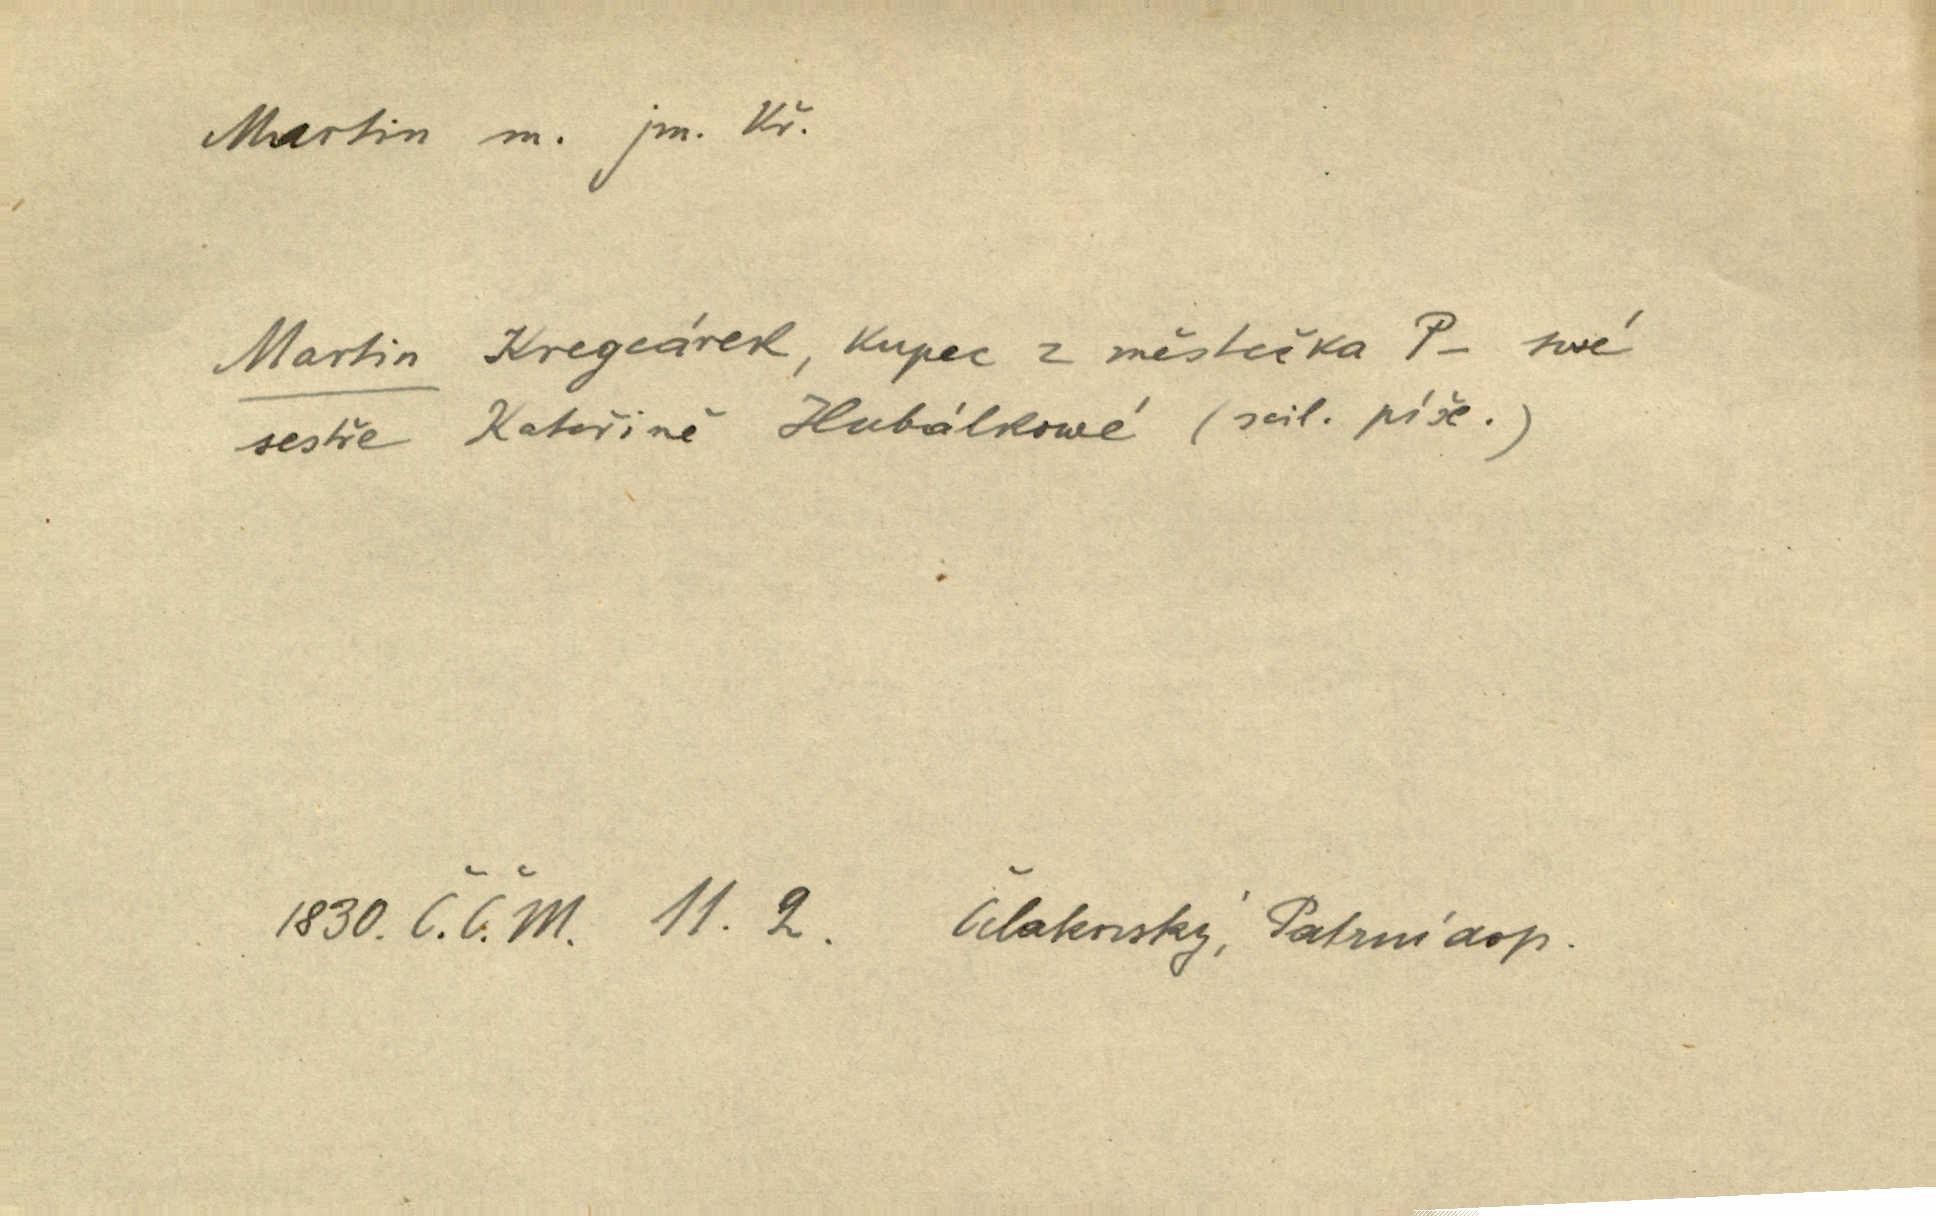 Martin m. jm. Kř.
Martin Kregcárek, kupec z městečka P– swé
sestře Kateřině Hubálkowé (scil. píše.)
1830. Č.Č.M. 11. 2. Čelakovský, Patrní dop.